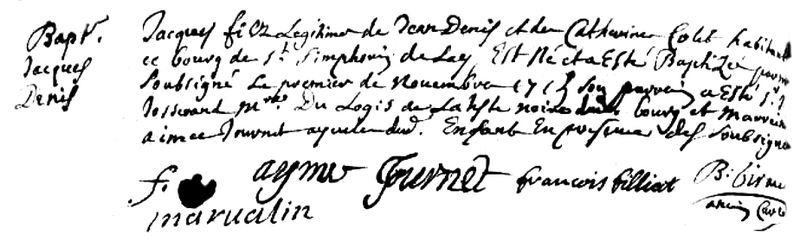 Bapt.
Jacques
Denis
Jacques filz Legitime de Jean Denis et de Catherine Colet habitant
ce bourg de St. Simphorien de Lay Est Né et a Esté Baptizé par
Soubsigné Le premier de Novembre 171 son parrain a Esté Sr. J
Josserand Mre. Du Logis de La teste noire bourg et Marrein
aimee Journet ayeule dud. Enfant En presence des Soubsigne
ayme Jurnet françois filliat
ancien Curé